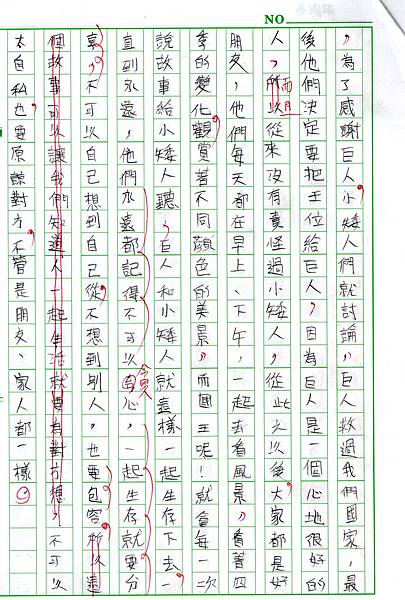 NO.
，為了感謝巨人，小矮人們就討論，巨人救過我們國家，最
後他們決定要把王位給巨人，因為巨人是一個心地很好的
人，所以從來沒有責怪過小矮人，從此之以後，大家都是好
而且
朋友，他們每天都在早上、下午，一起去看風景，看著四
季的變化，觀賞著不同顏色的美景。而國王呢！就會每一次
說故事給小矮人聽，巨人和小矮人就這樣一起生存下去一
直到永遠，他們永遠都記得不可以心，一起生存就要分
貪
享，不可以自己想到自己，從不想到別人，也要包容，所以這
個故事可以讓我們知道，人一起生活就要為對方想，不可以
太自私也，要原諒對方，不管是朋友、家人都一樣。